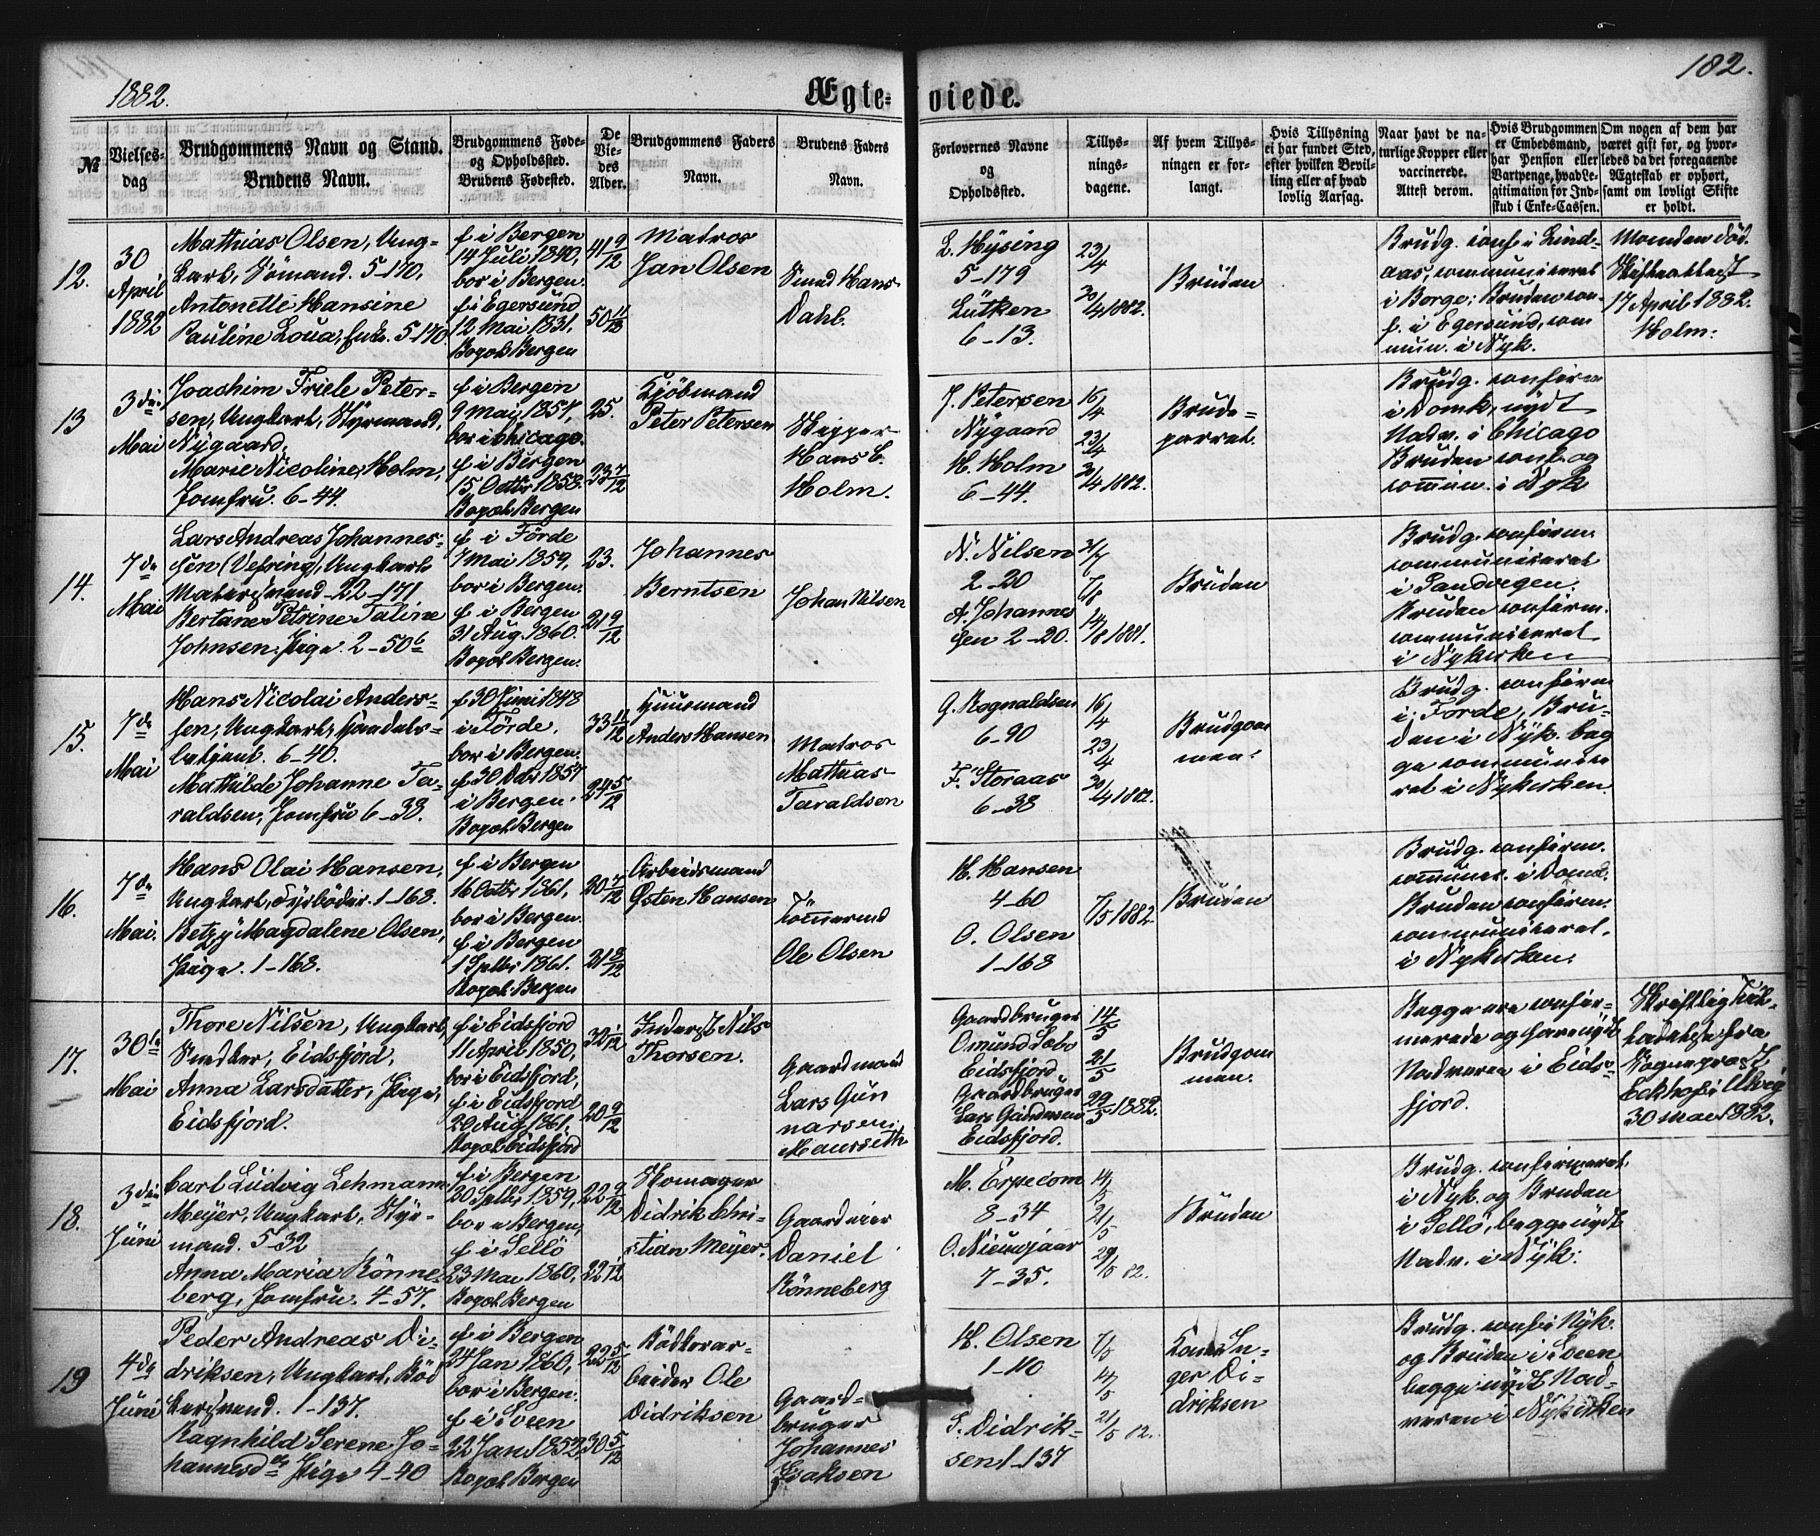 1882.
Ægte-
viede.
182.
№
Vielses-
dag
Brudgommens Navn og Stand.
Brudens Navn.
Brudgommens Føde-
og Opholdssted.
Brudens Fødested.
De
Vie-
des
Alder.
Brudgommens Faders
Navn.
Brudens Faders
Navn.
Forlovernes Navne
og
Opholdssted.
Tillys-
nings-
dagene.
Af hvem Tillys-
ningen er for-
langt.
Hvis Tillysning
ei har fundet Sted,
efter hvilken Bevil-
ling eller af hvad
lovlig Aarsag.
Naar havt de na-
turlige Kopper eller
vaccinerede.
Attest derom.
Hvis Brudgommen
er Embedsmand,
har Pension eller
Vartpenge, hvad Le-
gitimation for Ind-
skud i Enke-Cassen.
Om nogen af dem har
været gift før, og hvor-
ledes da det foregaaende
Ægteskab er ophørt,
samt om lovligt Skifte
er holdt.
12.
30
April
1882
Mathias Olsen, Ung-
karl, Sømand. 5-170,
Antonette Hansine
Pauline Loua, Enke. 5-170
f. i Bergen
14 Juli 1840,
bor i Bergen.
f. i Egersund
12 Mai 1831,
Bopæl Bergen
41 9/12
50 11/12
Matros
Jan Olsen
Smed Hans
Dahl.
L. Hysing
5-179
Lütken
6-13.
23/4
30/4 1882.
Bruden
Brudg. conf. i Lind-
aas, communiceret
i Borge; Bruden con-
f. i Egersund, com
mun. i Nyk.
Manden død.
Skifteattest
17 April 1882.
Holm.
13
3die
Mai
Joachim Friele Peter-
sen, Ungkarl, Styrmand,
Nygaard,
Marie Nicoline Holm,
Jomfru. 6-44.
f. i Bergen
9 Mai 1857,
bor i Chicago.
f. i Bergen
15 Octbr 1858.
Bopæl Bergen
25.
23 7/12
Kjøbmand
Peter Petersen
Skipper
Hans C.
Holm.
J. Petersen
Nygaard
H. Holm
6-44.
16/4
23/4
30/4 1882.
Brude-
parret.
Brudg. confirm
i Domk, nydt
Nadv. i Chicago
Bruden conf. og
commun. i Nyk
14.
7de
Mai
Lars Andreas Johannes-
sen (Vefring), Ungkarl
Maturgmand 22-171
Bertane Petrine Taline
Johnsen, Pige. 2-50b
f. i Förde
7 Mai 1859,
bor i Bergen.
f. i Bergen
31 Aug. 1860.
Bopæl Bergen.
23.
21 9/12
Johannes
Berntsen
Johan Nilsen
N. Nilsen
2-20
A. Johannes
sen 2-20.
31/7
7/8
14/8 1881.
Bruden
Brudg. confirm.
communiceret
i Sandvigen.
Bruden confirm.
communiceret
i Nykirken
15.
7de
Mai
Hans Nicolai Anders-
sen, Ungkarl, Handels-
betjent. 6-40.
Mathilde Johanne Ta-
raldsen, Jomfru 6-38.
f. 30 Juni 1848
i Förde.
bor i Bergen.
f. 30 Octbr 1857
i Bergen.
Bopæl Bergen
33 11/12
24 5/12
Huusmand
Anders Hansen
Matros
Mathias
Taraldsen
G. Rognaldsen
6-90
F. Storaas
6-38
16/4
23/4
30/4 1882.
Brudgom
men.
Brudg. confirm
i Förde, Bru-
den i Nyk. beg
ge communice
ret i Nykirken.
16.
7de
Mai.
Hans Olai Hansen,
Ungkarl, Fyrbøder. 1-168.
Betzy Magdalene Olsen,
Pige. 1-168.
f. i Bergen
16 Octbr 1861,
bor i Bergen.
f. i Bergen
1 Septbr 1861.
Bopæl Bergen
20 7/12
21 8/12
Arbeidsmand
Østen Hansen
Tömmermd
Ole Olsen
H. Hansen
4-60
O. Olsen
1-168
7/5 1882
Bruden
Brudg. confirm.
commun. i Domk.
Bruden confirm.
communiceret.
i Nykirken.
17.
30te
Mai
Thore Nilsen, Ungkarl,
Snedker, Eidsfjord,
Anna Larsdatter, Pige,
Eidsfjord.
f. i Eidsfjord
11 April 1850,
bor i Eidsfjord,
f. i Eidsfjord
20 Aug. 1861.
Bopæl Eidsfjord
32 1/12
20 9/12
Inderst Nils
Thorsen.
Gaardmand
Lars Gun
narsen
Maurseth
Gaardbruger
Omund Sæbø
Eidsfjord
Gaardbruger
Lars Gundersen
Eidsfjord.
14/5
21/5
29/5 1882.
Brudgom
men.
Begge ere confir-
merede og have nydt
Nadveren i Eids-
fjord.
Skriftlig Till-
ladelse fra
Sogneprest
Eckhof i Ulvig
30 Mai 1882.
18.
3die
Juni
Carl Ludvig Lehmann
Meyer, Ungkarl, Styr-
mand. 5-32
Anna Maria Rönne-
berg, Jomfru. 4-57.
f. i Bergen
20 Septbr 1859,
bor i Bergen,
f. i Sellö
23 Mai 1860,
Bopæl Bergen
22 9/12
22 1/12
Skomager
Didrik Chri-
stian Meyer.
Gaardeier
Daniel
Rönneberg
M. Erpecom
8-34
O. Nieuwejaar
7-35.
14/5
21/5
29/5 82.
Bruden
Brudg. confirmeret
i Nyk. og Bruden
i Sellö, begge nydt
Nadv. i Nyk.
19
4de
Juni
Peder Andreas Di-
driksen, Ungkarl, Bød
kersvend. 1-137.
Ragnhild Serene Jo-
hannesdtr Pige 4-40
f. i Bergen
24 Jan 1860,
bor i Bergen.
f. i Sveen
22 Jan 1852,
Bopæl Bergen
22 5/12
30 5/12
Bødkerar-
beider Ole
Didriksen
Gaard-
bruger
Johannes
Isaksen
H. Olsen
1-110
S. Didrik-
sen 1-137
7/5
14/5
21/5 82.
Karen In-
ger Di-
driksen
Brudg. conf. i Nyk.
og Bruden i Sveen
begge nydt Nad-
veren i Nykirken